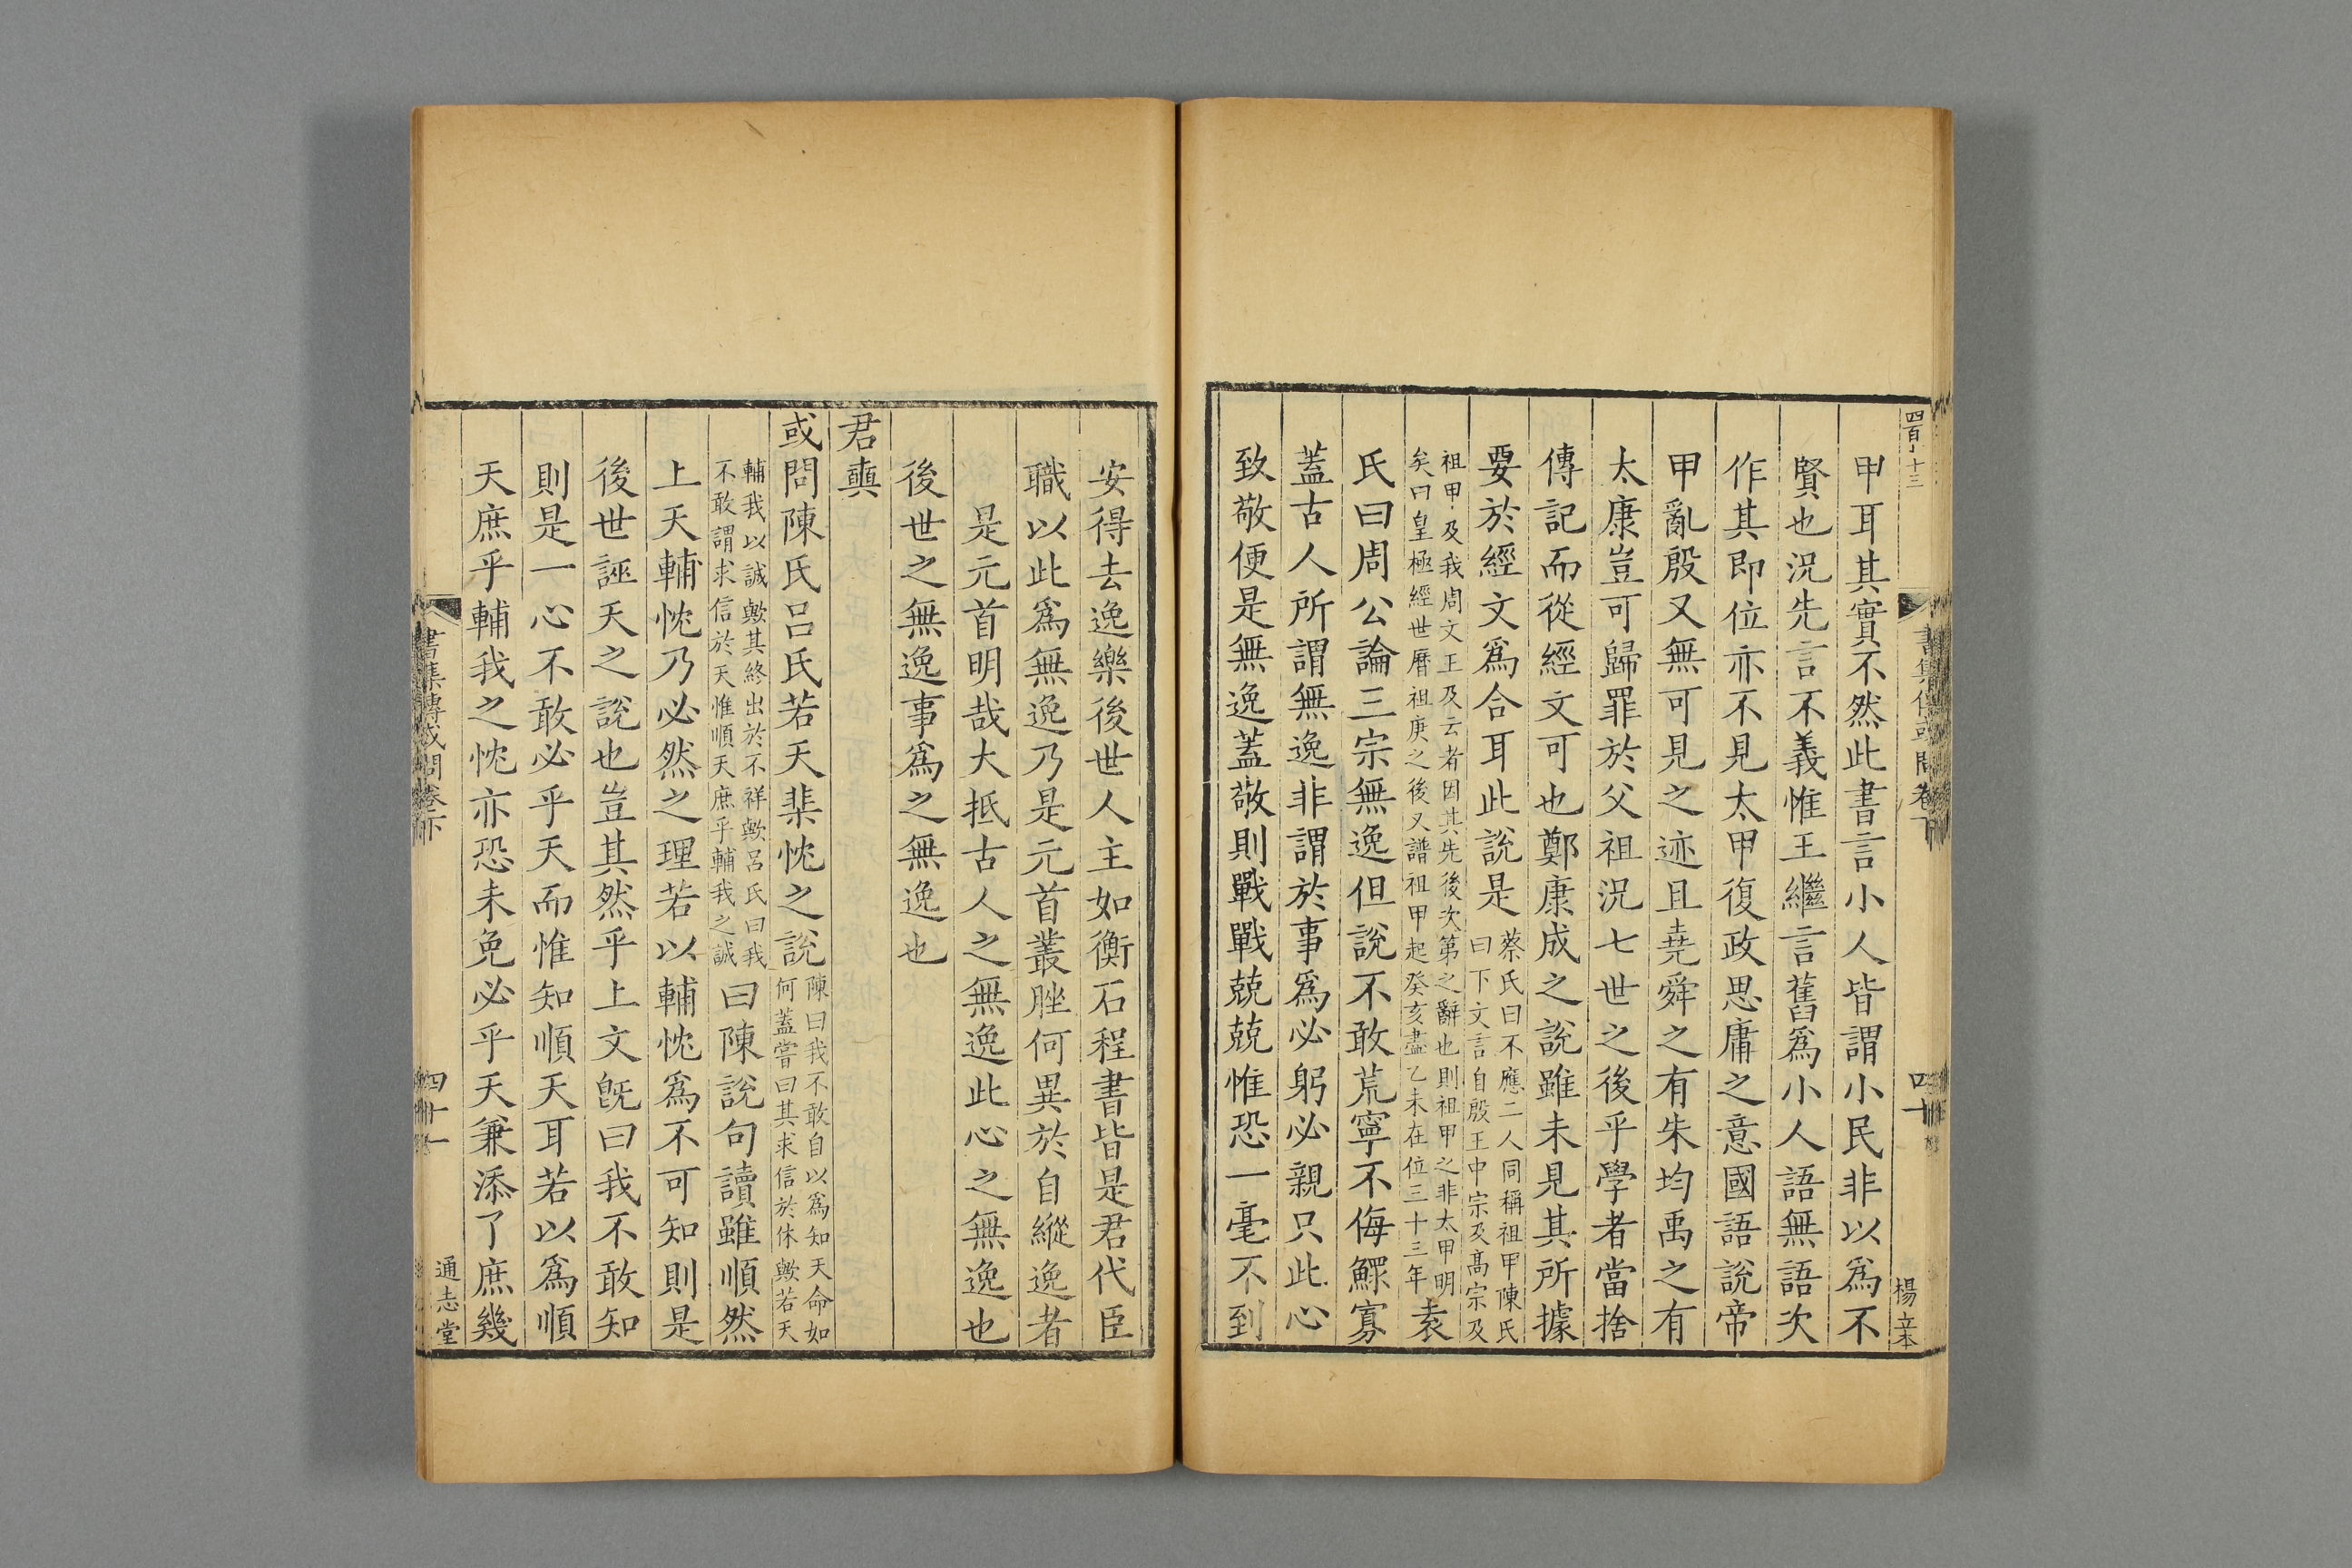 四百十三
書集傳或問卷下
四十
楊立本
甲耳其實不然此書言小人皆謂小民非以爲不
賢也況先言不義惟王繼言舊爲小人語無語次
作其即位亦不見太甲復政思庸之意國語說帝
甲亂殷又無可見之迹且堯舜之有朱均禹之有
太康豈可歸罪於父祖況七世之後乎學者當捨
傳記而從經文可也鄭康成之說雖未見其所據
要於經文爲合耳此說是蔡氏曰不應二人同稱祖甲陳氏
曰下文言自殷王中宗及髙宗及
祖甲及我周文王及云者因其先後次第之辭也則祖甲之非太甲明
矣曰皇極經世曆祖庚之後又譜祖甲起癸亥盡乙未在位三十三年袁
氏曰周公論三宗無逸但說不敢荒寧不侮鰥寡
蓋古人所謂無逸非謂於事爲必躬必親只此心
致敬便是無逸蓋敬則戰戰兢兢惟恐一毫不到
安得去逸樂後世人主如衡石程書皆是君代臣
職以此爲無逸乃是元首叢脞何異於自縱逸者
是元首明哉大抵古人之無逸此心之無逸也
後世之無逸事爲之無逸也
君奭
或問陳氏呂氏若天棐忱之說陳曰我不敢自以爲知天命如
何蓋嘗曰其求信於休歟若天
輔我以誠歟其終出於不祥歟呂氏曰我
不敢謂求信於天惟順天庶乎輔我之誠曰陳說句讀雖順然
上天輔忱乃必然之理若以輔忱爲不可知則是
後世誣天之說也豈其然乎上文旣曰我不敢知
則是一心不敢必乎天而惟知順天耳若以爲順
天庶乎輔我之忱亦恐未免必乎天兼添了庶幾
書集傳或問卷下
四十一
通志堂